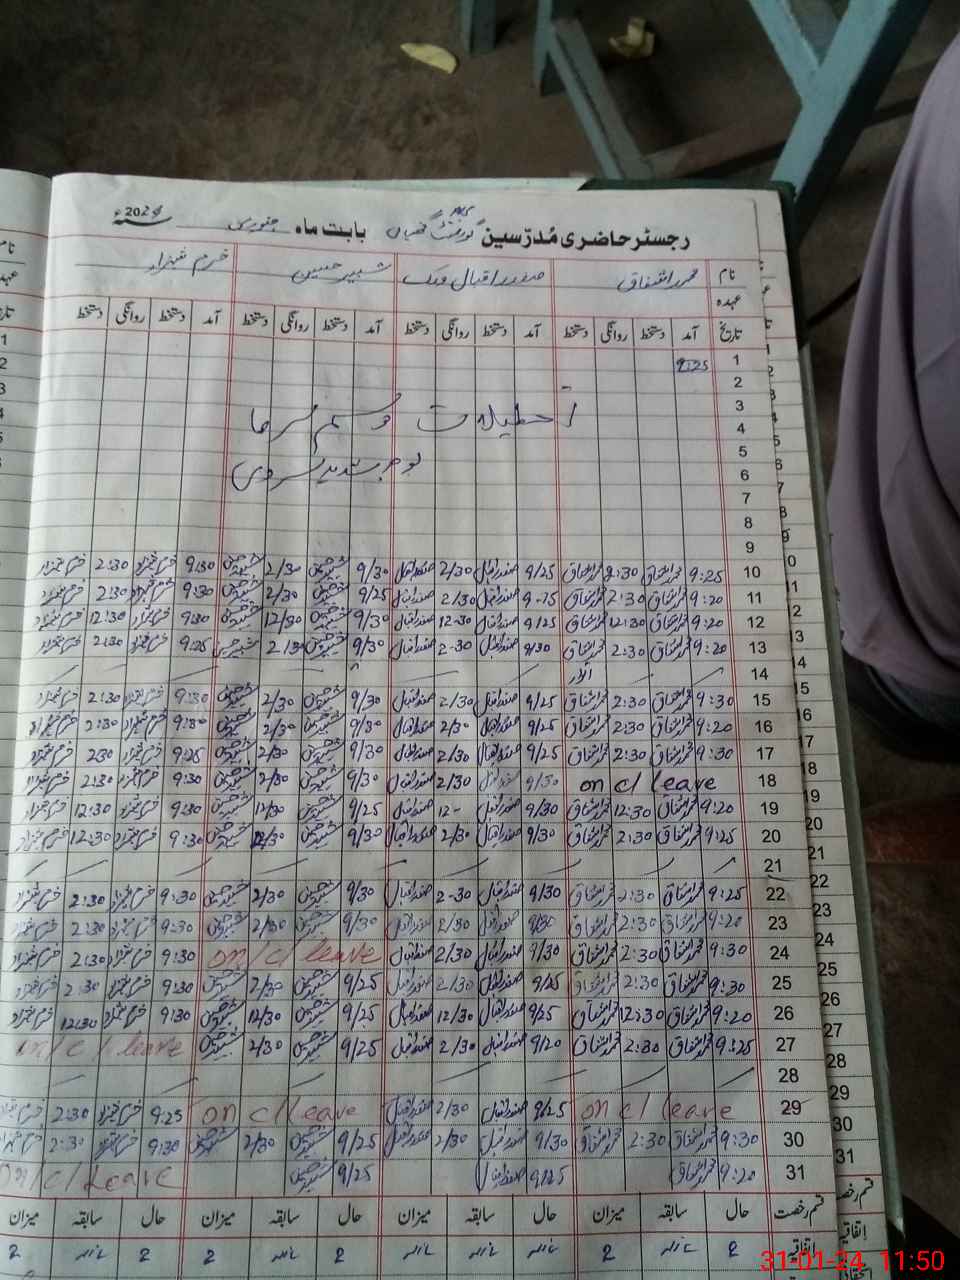 رجسٹر حاضری مُدرّسین گورنمنٹ بابت ماہ جنوری سنہ 2024ء
نام محمد اشفاق صفدر اقبال ملک شبیر حسین خرم شہزاد
عہدہ
تاریخ آمد دستخط روانگی دستخط آمد دستخط روانگی دستخط آمد دستخط روانگی دستخط آمد دستخط روانگی دستخط
1 9:25
2
3 تعطیلات موسم سرما
4
5 بوجہ شدید سردی
6
7
8
9
10 9:25 محمد اشفاق 2:30 محمد اشفاق 9/25 صفدر اقبال 2/30 صفدر اقبال 9/30 شبیر حسین 2/30 شبیر حسین 9:30 خرم شہزاد 2:30 خرم شہزاد
11 9:20 محمد اشفاق 2:30 محمد اشفاق صفدر اقبال 2/30 صفدر اقبال 9/25 شبیر حسین 2/30 شبیر حسین 9:30 خرم شہزاد 2:30 خرم شہزاد
12 9:20 محمد اشفاق 12:30 محمد اشفاق 9/25 صفدر اقبال 12-30 صفدر اقبال 9/30 شبیر حسین 12/30 شبیر حسین 9:30 خرم شہزاد 12:30 خرم شہزاد
13 9:20 محمد اشفاق 2:30 محمد اشفاق 9/30 صفدر اقبال 2-30 صفدر اقبال 9/30 شبیر حسین 2/30 شبیر حسین 9:25 خرم شہزاد 2:30 خرم شہزاد
14
15 9:30 محمد اشفاق 2:30 محمد اشفاق 9/25 صفدر اقبال 2/30 صفدر اقبال 9/30 شبیر حسین 2/30 شبیر حسین 9:30 خرم شہزاد 2:30 خرم شہزاد
16 9:20 محمد اشفاق 2:30 محمد اشفاق 9/25 صفدر اقبال 2/30 صفدر اقبال 9/30 شبیر حسین 2/30 شبیر حسین 9:30 خرم شہزاد 2:30 خرم شہزاد
17 9:30 محمد اشفاق 2:30 محمد اشفاق 9/25 صفدر اقبال 2/30 صفدر اقبال 9/30 شبیر حسین 2/30 شبیر حسین 9:25 خرم شہزاد 230 خرم شہزاد
18 on c/ leave 9/30 صفدر اقبال 2/30 صفدر اقبال 9/30 شبیر حسین 2/30 شبیر حسین 9:30 خرم شہزاد 2:30 خرم شہزاد
19 9:20 محمد اشفاق 12:30 محمد اشفاق 9/30 صفدر اقبال 12- صفدر اقبال 9/25 شبیر حسین 12/30 شبیر حسین 9:30 خرم شہزاد 12:30 خرم شہزاد
20 9:25 محمد اشفاق 2:30 محمد اشفاق 9/30 صفدر اقبال 2/30 صفدر اقبال 9/30 شبیر حسین شبیر حسین 9:30 خرم شہزاد 12:30 خرم شہزاد
21
22 9:25 محمد اشفاق 2:30 محمد اشفاق 9/30 صفدر اقبال 2-30 صفدر اقبال 9/30 شبیر حسین 2/30 شبیر حسین 9:30 خرم شہزاد 2:30 خرم شہزاد
23 9:20 محمد اشفاق 2:30 محمد اشفاق 9/30 صفدر اقبال 2/30 صفدر اقبال 9/30 شبیر حسین 2/30 شبیر حسین 9:30 خرم شہزاد 2:30 خرم شہزاد
24 9:30 محمد اشفاق 2:30 محمد اشفاق 9/30 صفدر اقبال 2/30 صفدر اقبال on/c/ leave 9:30 خرم شہزاد 2:30 خرم شہزاد
25 9:30 محمد اشفاق 2:30 محمد اشفاق 9/25 صفدر اقبال 2/30 صفدر اقبال 9/25 شبیر حسین 2/30 شبیر حسین 9:30 خرم شہزاد 2:30 خرم شہزاد
26 9:20 محمد اشفاق 12:30 محمد اشفاق 9/25 صفدر اقبال 12/30 صفدر اقبال 9/25 شبیر حسین 12/30 شبیر حسین 9:30 خرم شہزاد 12:30 خرم شہزاد
27 9:25 محمد اشفاق 2:30 محمد اشفاق 9/20 صفدر اقبال 2/30 صفدر اقبال 9/25 شبیر حسین 2/30 شبیر حسین on/c/ leave
28
29 on c/ leave 9/25 صفدر اقبال 2/30 صفدر اقبال on c/ leave 9:25 خرم شہزاد 2:30 خرم شہزاد
30 9:30 محمد اشفاق 2:30 محمد اشفاق 9/30 صفدر اقبال 2/30 صفدر اقبال 9/25 شبیر حسین 2/30 شبیر حسین 9:30 خرم شہزاد 2:30 خرم شہزاد
31 9:20 محمد اشفاق 9/25 صفدر اقبال 9/25 شبیر حسین on/c/ Leave
قسم رخصت حال سابقہ میزان حال سابقہ میزان حال سابقہ میزان حال سابقہ میزان
اتفاقیہ 2 2 2 2 2 2
31-01-24 11:50